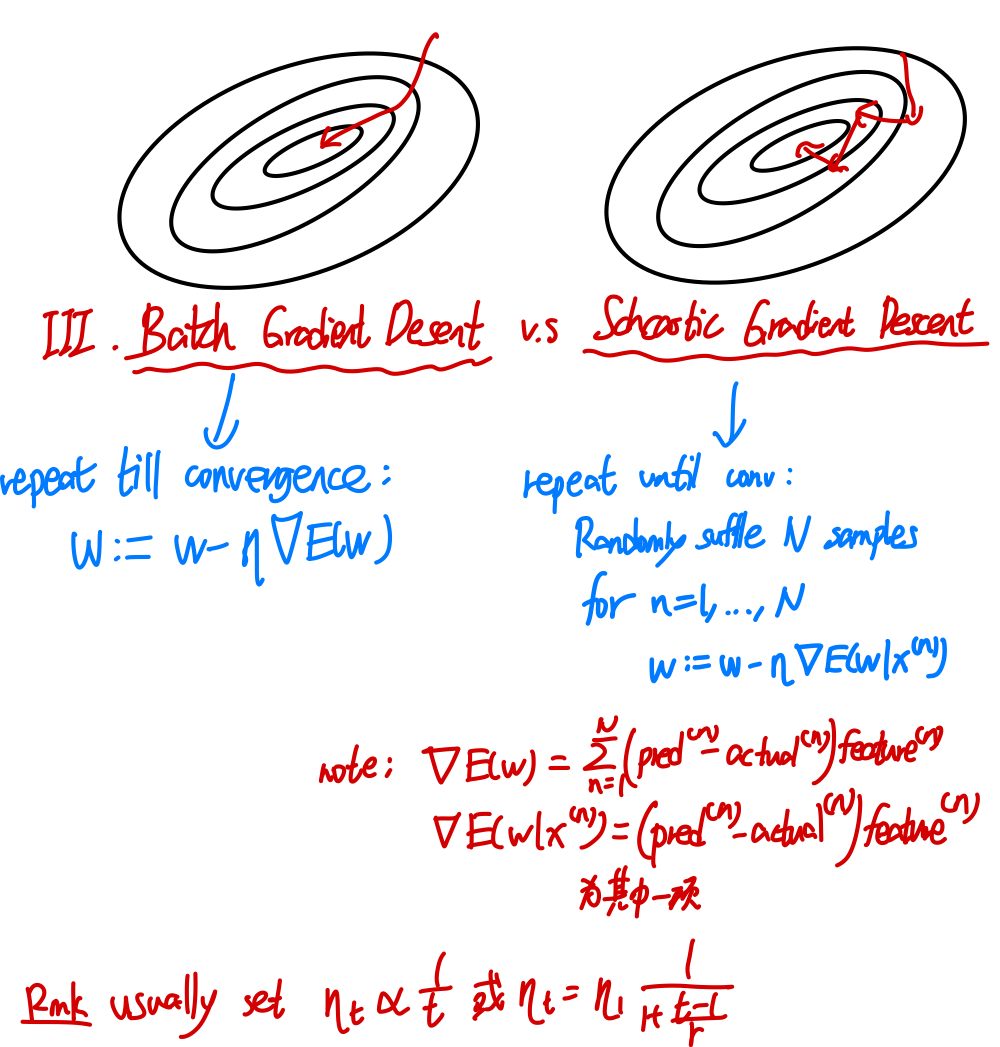 III. Batch Gradient Desent v.s Schcastic Gradient Descent
repeat till convergence:
w := w - η∇E(w)
repeat until conv:
Randomly suffle N samples
for n=1, ..., N
w := w - η∇E(w|x⁽ⁿ⁾)
note: ∇E(w) = ∑ₙ₌₁ᴺ (pred⁽ⁿ⁾ - actual⁽ⁿ⁾) feature⁽ⁿ⁾
∇E(w|x⁽ⁿ⁾) = (pred⁽ⁿ⁾ - actual⁽ⁿ⁾) feature⁽ⁿ⁾
为其中一项
Rmk usually set ηt ∝ 1/t 或 ηt = η1 1/(1+(t-1)/r)